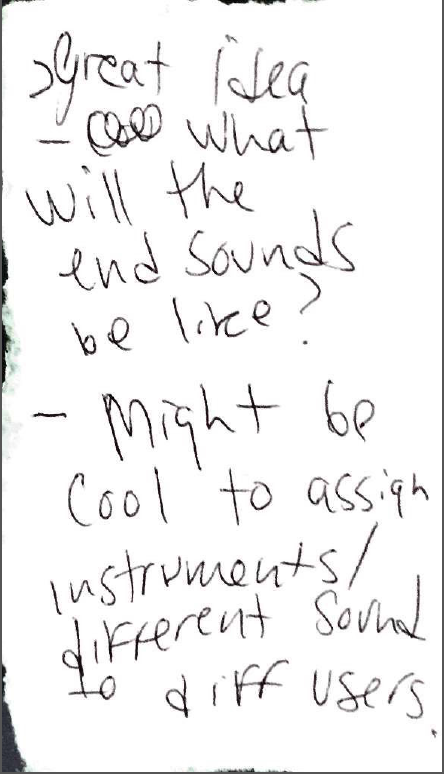 >Great idea
- what
will the
end sounds
be like?
- Might be
cool to assign
instruments/
different sound
to diff users.